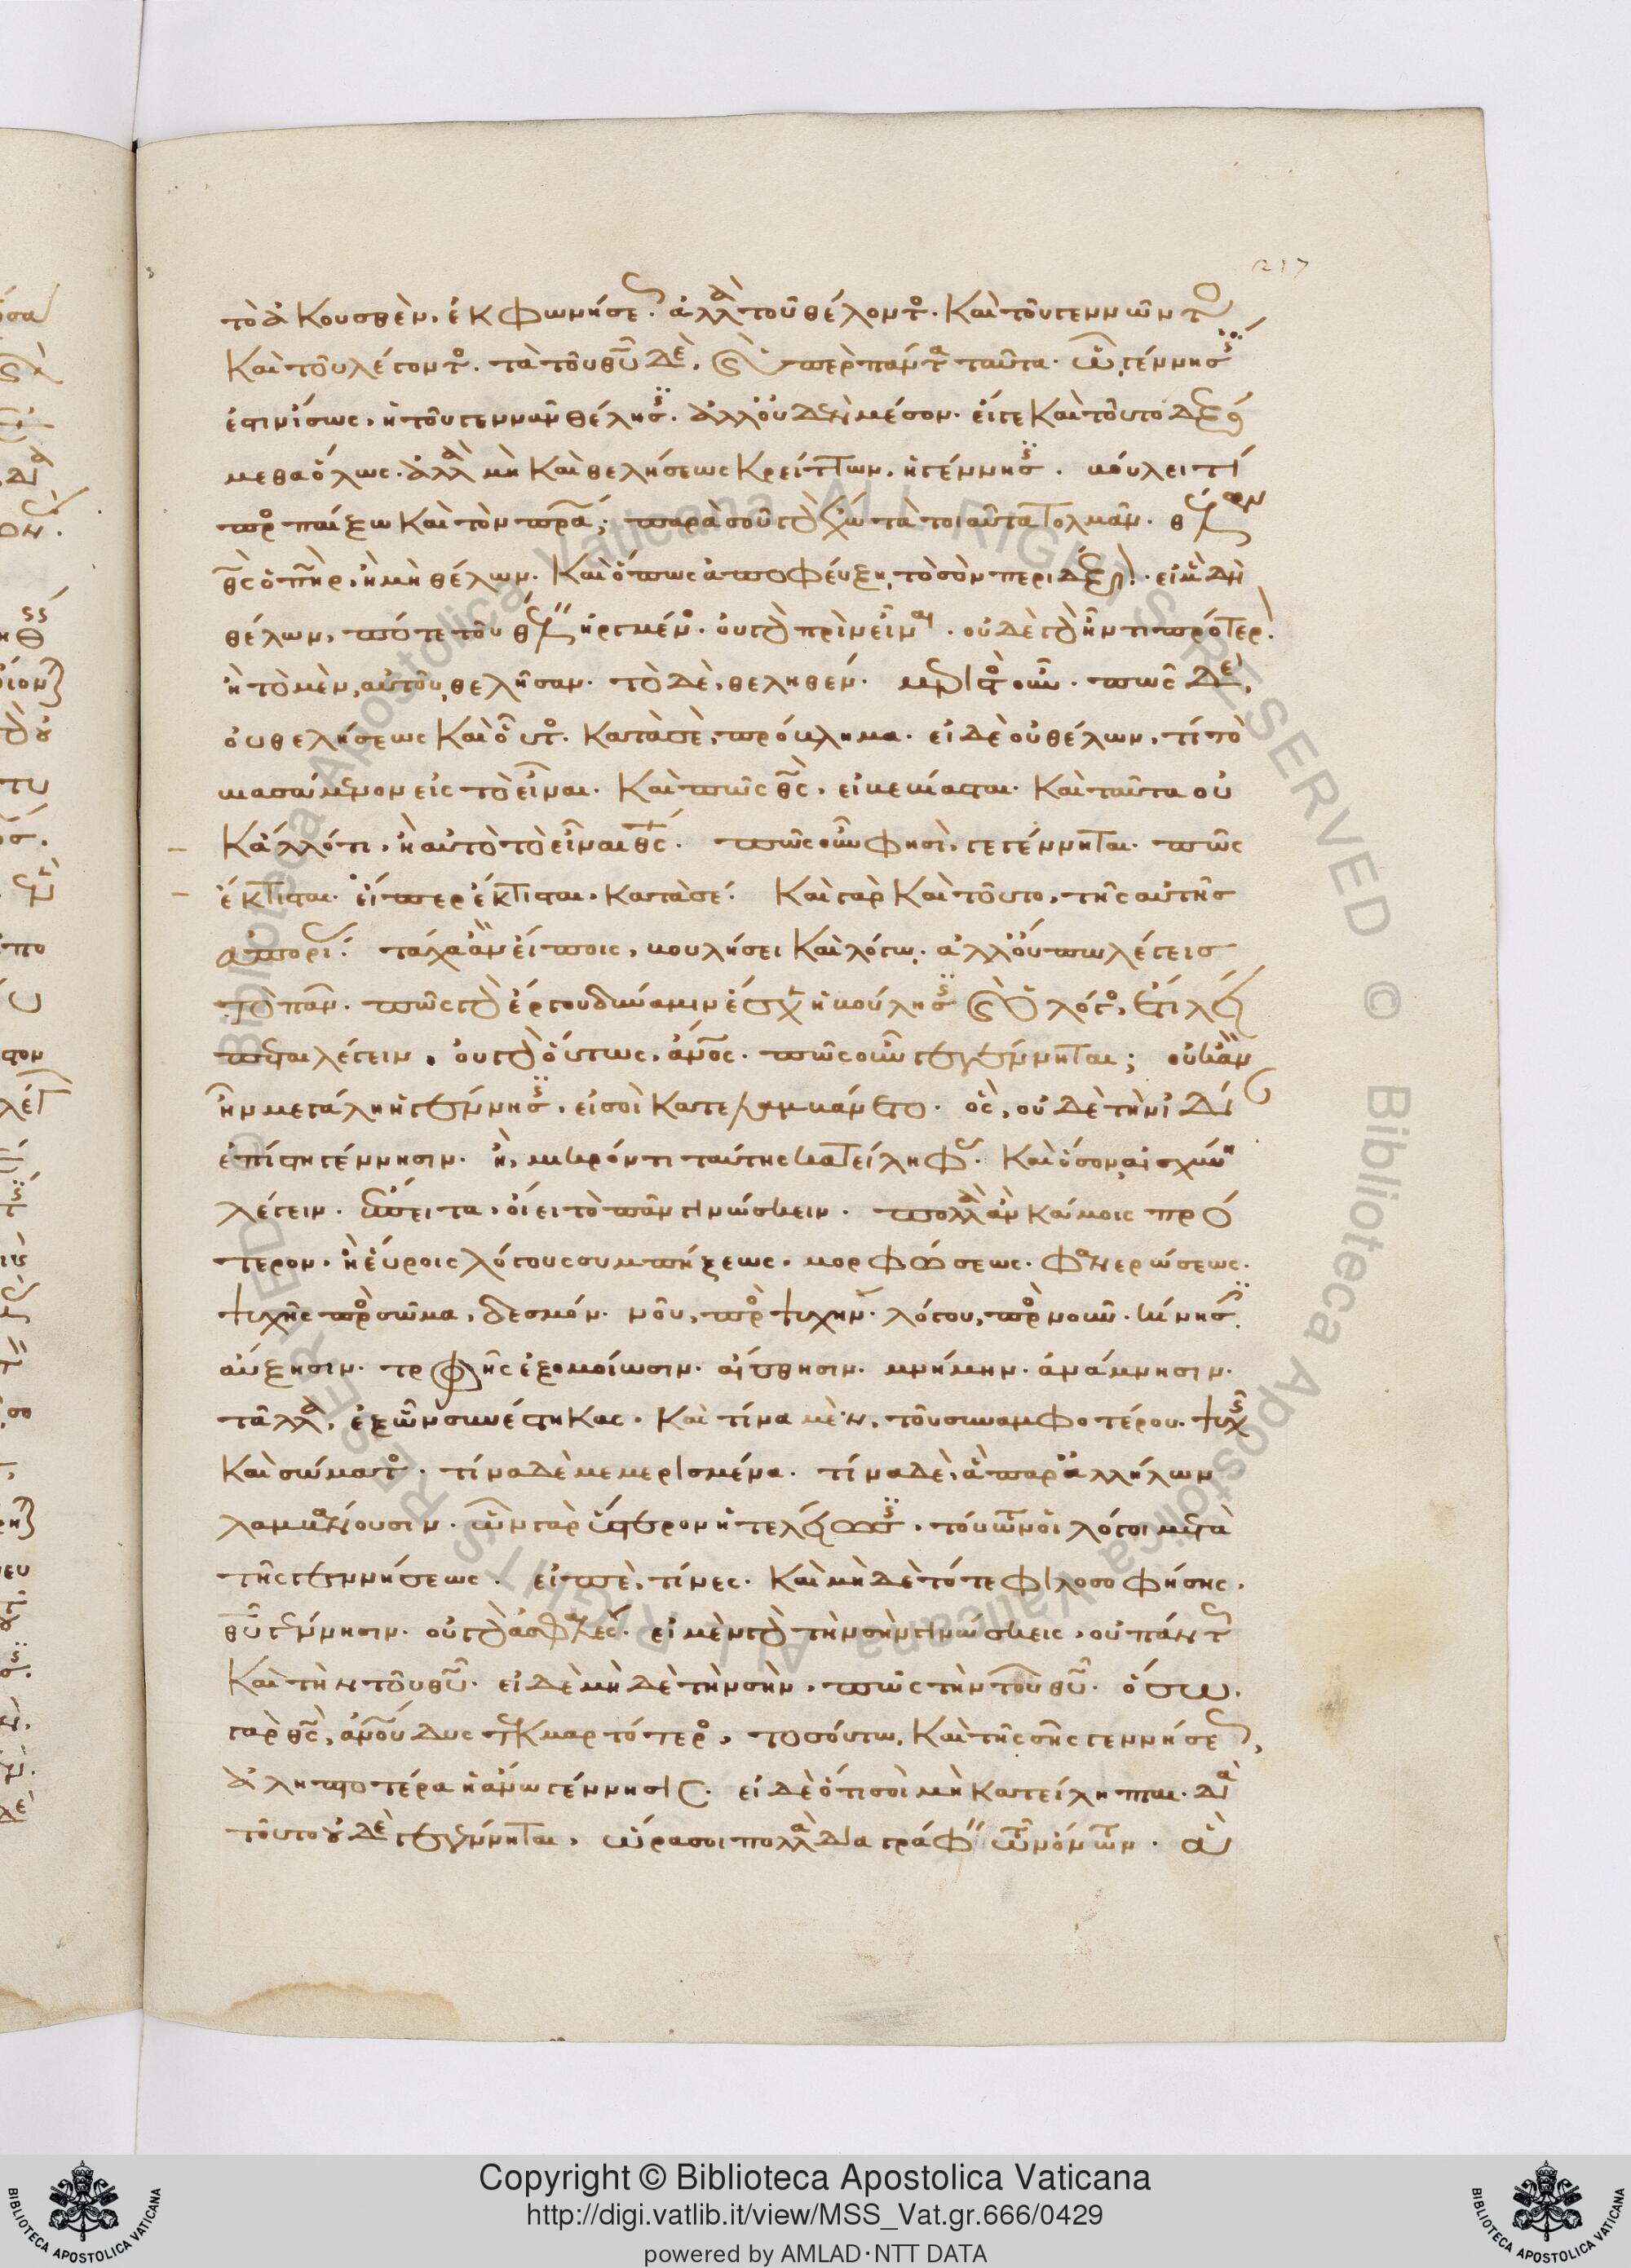 217
τὸ ἀκουσθὲν, ἐκφωνήσεως· ἀλλὰ τοῦ θέλοντος· καὶ τοῦ γεννῶντος
καὶ τοῦ λέγοντος. τὰ τοῦ θῦ δὲ, καὶ ὑπὲρ πάντα ταῦτα· ὧ, γέννησις
ἐστιν ἴσως, ἡ τοῦ γεννᾶν θέλησις. ἀλλ' οὐδὲν μέσον· εἴγε καὶ τοῦτο δεξό
μεθα ὅλως· ἀλλὰ μὴ καὶ θελήσεως κρείττων, ἡ γέννησις. βούλει τί
προσπαίξω καὶ τὸν πρᾶ; παρὰ σοῦ γὰρ ἔχω τὰ τοιαῦτα τολμᾶν· θέλων
θς ὁ πὴρ, ἢ μὴ θέλων. καὶ ὅπως ἀποφεύξῃ, τὸ σὸν περιδέξιον. εἰ μὲν δὴ
θέλων, πότε τοῦ θέλειν ἠργμένος· οὐ γὰρ πρὶν εἶναι. οὐδὲ γὰρ ἦν τι πρότερον.
ἢ τὸ μὲν, αὐτοῦ, θελῆσαν· τὸ δὲ, θεληθέν· μεριστὸς οὖν. πῶς δὲ,
οὐ θελήσεως καὶ οὗτος κατὰ σὲ, πρόβλημα. εἰ δὲ οὐ θέλων, τί τὸ
βιασάμενον εἰς τὸ εἶναι. καὶ πῶς θς, εἰ βεβίασται· καὶ ταῦτα οὐ
κ ἄλλό τι, ἢ αὐτὸ τὸ εἶναι θς. πῶς οὖν φησὶ, γεγέννηται. πῶς
ἔκτισται· εἴπερ ἔκτισται, κατὰ σέ. καὶ γὰρ καὶ τοῦτο, τῆς αὐτῆς
ἀπορίας. τάχα ἂν εἴποις, βουλήσει καὶ λόγω. ἀλλ' οὔπω λέγεις
τὸ πᾶν. πῶς γὰρ ἔργου δύναμιν ἔσχεν ἡ βούλησις καὶ ὁ λόγος, ἔτι λεί
πεται λέγειν. οὐ γὰρ οὕτως, ἄνος. πῶς οὖν γεγέννηται; οὐκ ἂν
ἦν μεγάλη ἡ γέννησις, εἰ σοὶ κατελαμβάνετο. ὃς, οὐδὲ τὴν ἰδίαν
ἐπίστῃ γέννησιν. ἢ, μικρόν τι ταύτης κατείληφας. καὶ ὅσον, αἰσχύνη
λέγειν. ἔπειτα, οἴει τὸ πᾶν γινώσκειν. πολλὰ ἂν κάμοις πρό
τερον, ἢ εὕροις λόγους συμπήξεως, μορφώσεως· φανερώσεως.
ψυχῆς πρὸς σῶμα, δεσμόν· νοῦ, πρὸς ψυχήν· λόγου, πρὸς νοῦν· κίνησιν.
αὔξησιν· τροφῆς ἐξομοίωσιν· αἴσθησιν· μνήμην· ἀνάμνησιν.
τἄλλα, ἐξ ὧν συνέστηκας. καὶ τίνα μὲν, τοῦ συναμφοτέρου· ψυχῆς
καὶ σώματος. τίνα δὲ μεμερισμένα. τίνα δὲ, ἃ παρ' ἀλλήλων
λαμβάνουσιν. ὧν γὰρ ὕστερον ἡ τελείωσις, τούτων οἱ λόγοι μετὰ
τῆς γεννήσεως. εἰπὲ, τίνες. καὶ μηδὲ τότε φιλοσοφήσῃς,
θῦ γέννησιν. οὐ γὰρ ἀσφαλές. εἰ μὲν γὰρ τὴν σὴν γινώσκεις, οὐ πάντως
καὶ τὴν τοῦ θῦ. εἰ δὲ μηδὲ τὴν σὴν, πῶς τὴν τοῦ θῦ· ὅσω.
γὰρ θς, ἀνοῦ δυστεκμαρτότερος, τοσούτω, καὶ τῆς σῆς γεννήσεως,
ἀληπτοτέρα ἡ ἄνω γέννησις. εἰ δὲ ὅτι σοὶ μὴ κατείληπται. διὰ
τοῦτο οὐδὲ γεγέννηται, ὥρα σοι πολλὰ διαγράφειν τῶν ὄντων. ἃ
Copyright © Biblioteca Apostolica Vaticana
http://digi.vatlib.it/view/MSS_Vat.gr.666/0429
powered by AMLAD·NTT DATA